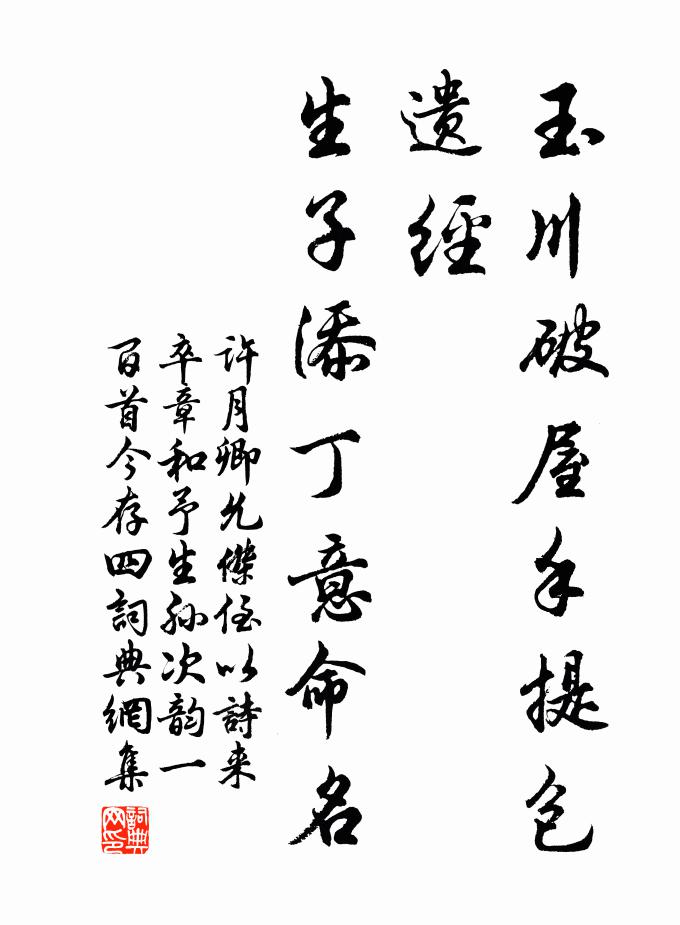 玉川破屋手提包
遗經
生子添丁意命名
許月卿允傑侄以詩来
卒章和予生孙次韵一
百首今存四詞典網集
詞典网印